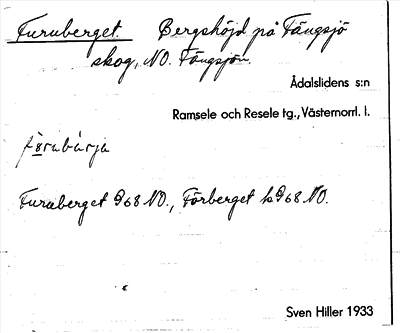 Furuberget. Bergshöjd på Tängsjö
skog, NO. Tängsjön.
Ådalslidens s:n
Ramsele och Resele tg., Västernorrl. l.
Furuberget 968 NO., Förberget k 968 NO.
Sven Hiller 1933